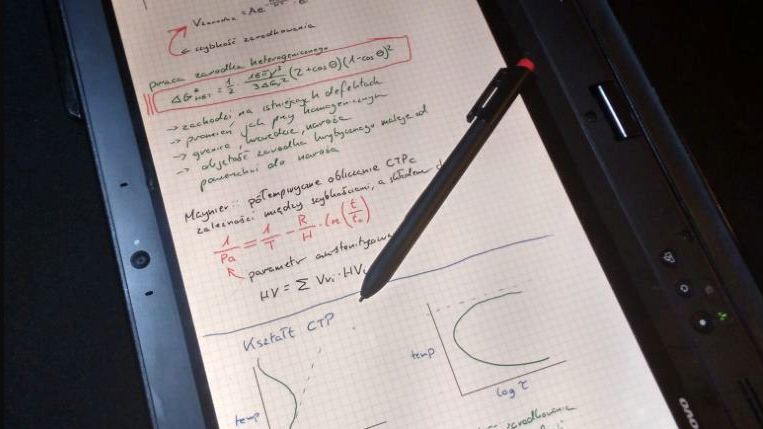 Vzarodka = Ae
szybkość zarodkowania
praca zarodka heterogenicznego
ΔG*het = 1/2 · 16πγ³/3ΔGv² (2+cosΘ)(1-cosΘ)²
→ zachodzi na istniejących defektach
→ promień jak przy homogenicznym
→ granice, krawędzie, naroża
→ objętość zarodka krytycznego maleje od
powierzchni do naroża
Maynier: półempiryczne obliczanie CTPc
zależności między szybkościami, a składem
1/Pa = 1/T - R/H · ln(t/t₀)
parametr austenityzow
HV = Σ Vvi · HVi
Kształt CTP
temp
temp
log τ
zarodkowania